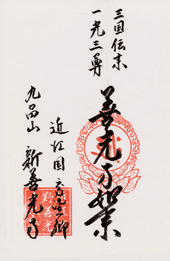 三国伝来
一光三尊
善光寺如来
近江国高野郷
九品山 新善光寺